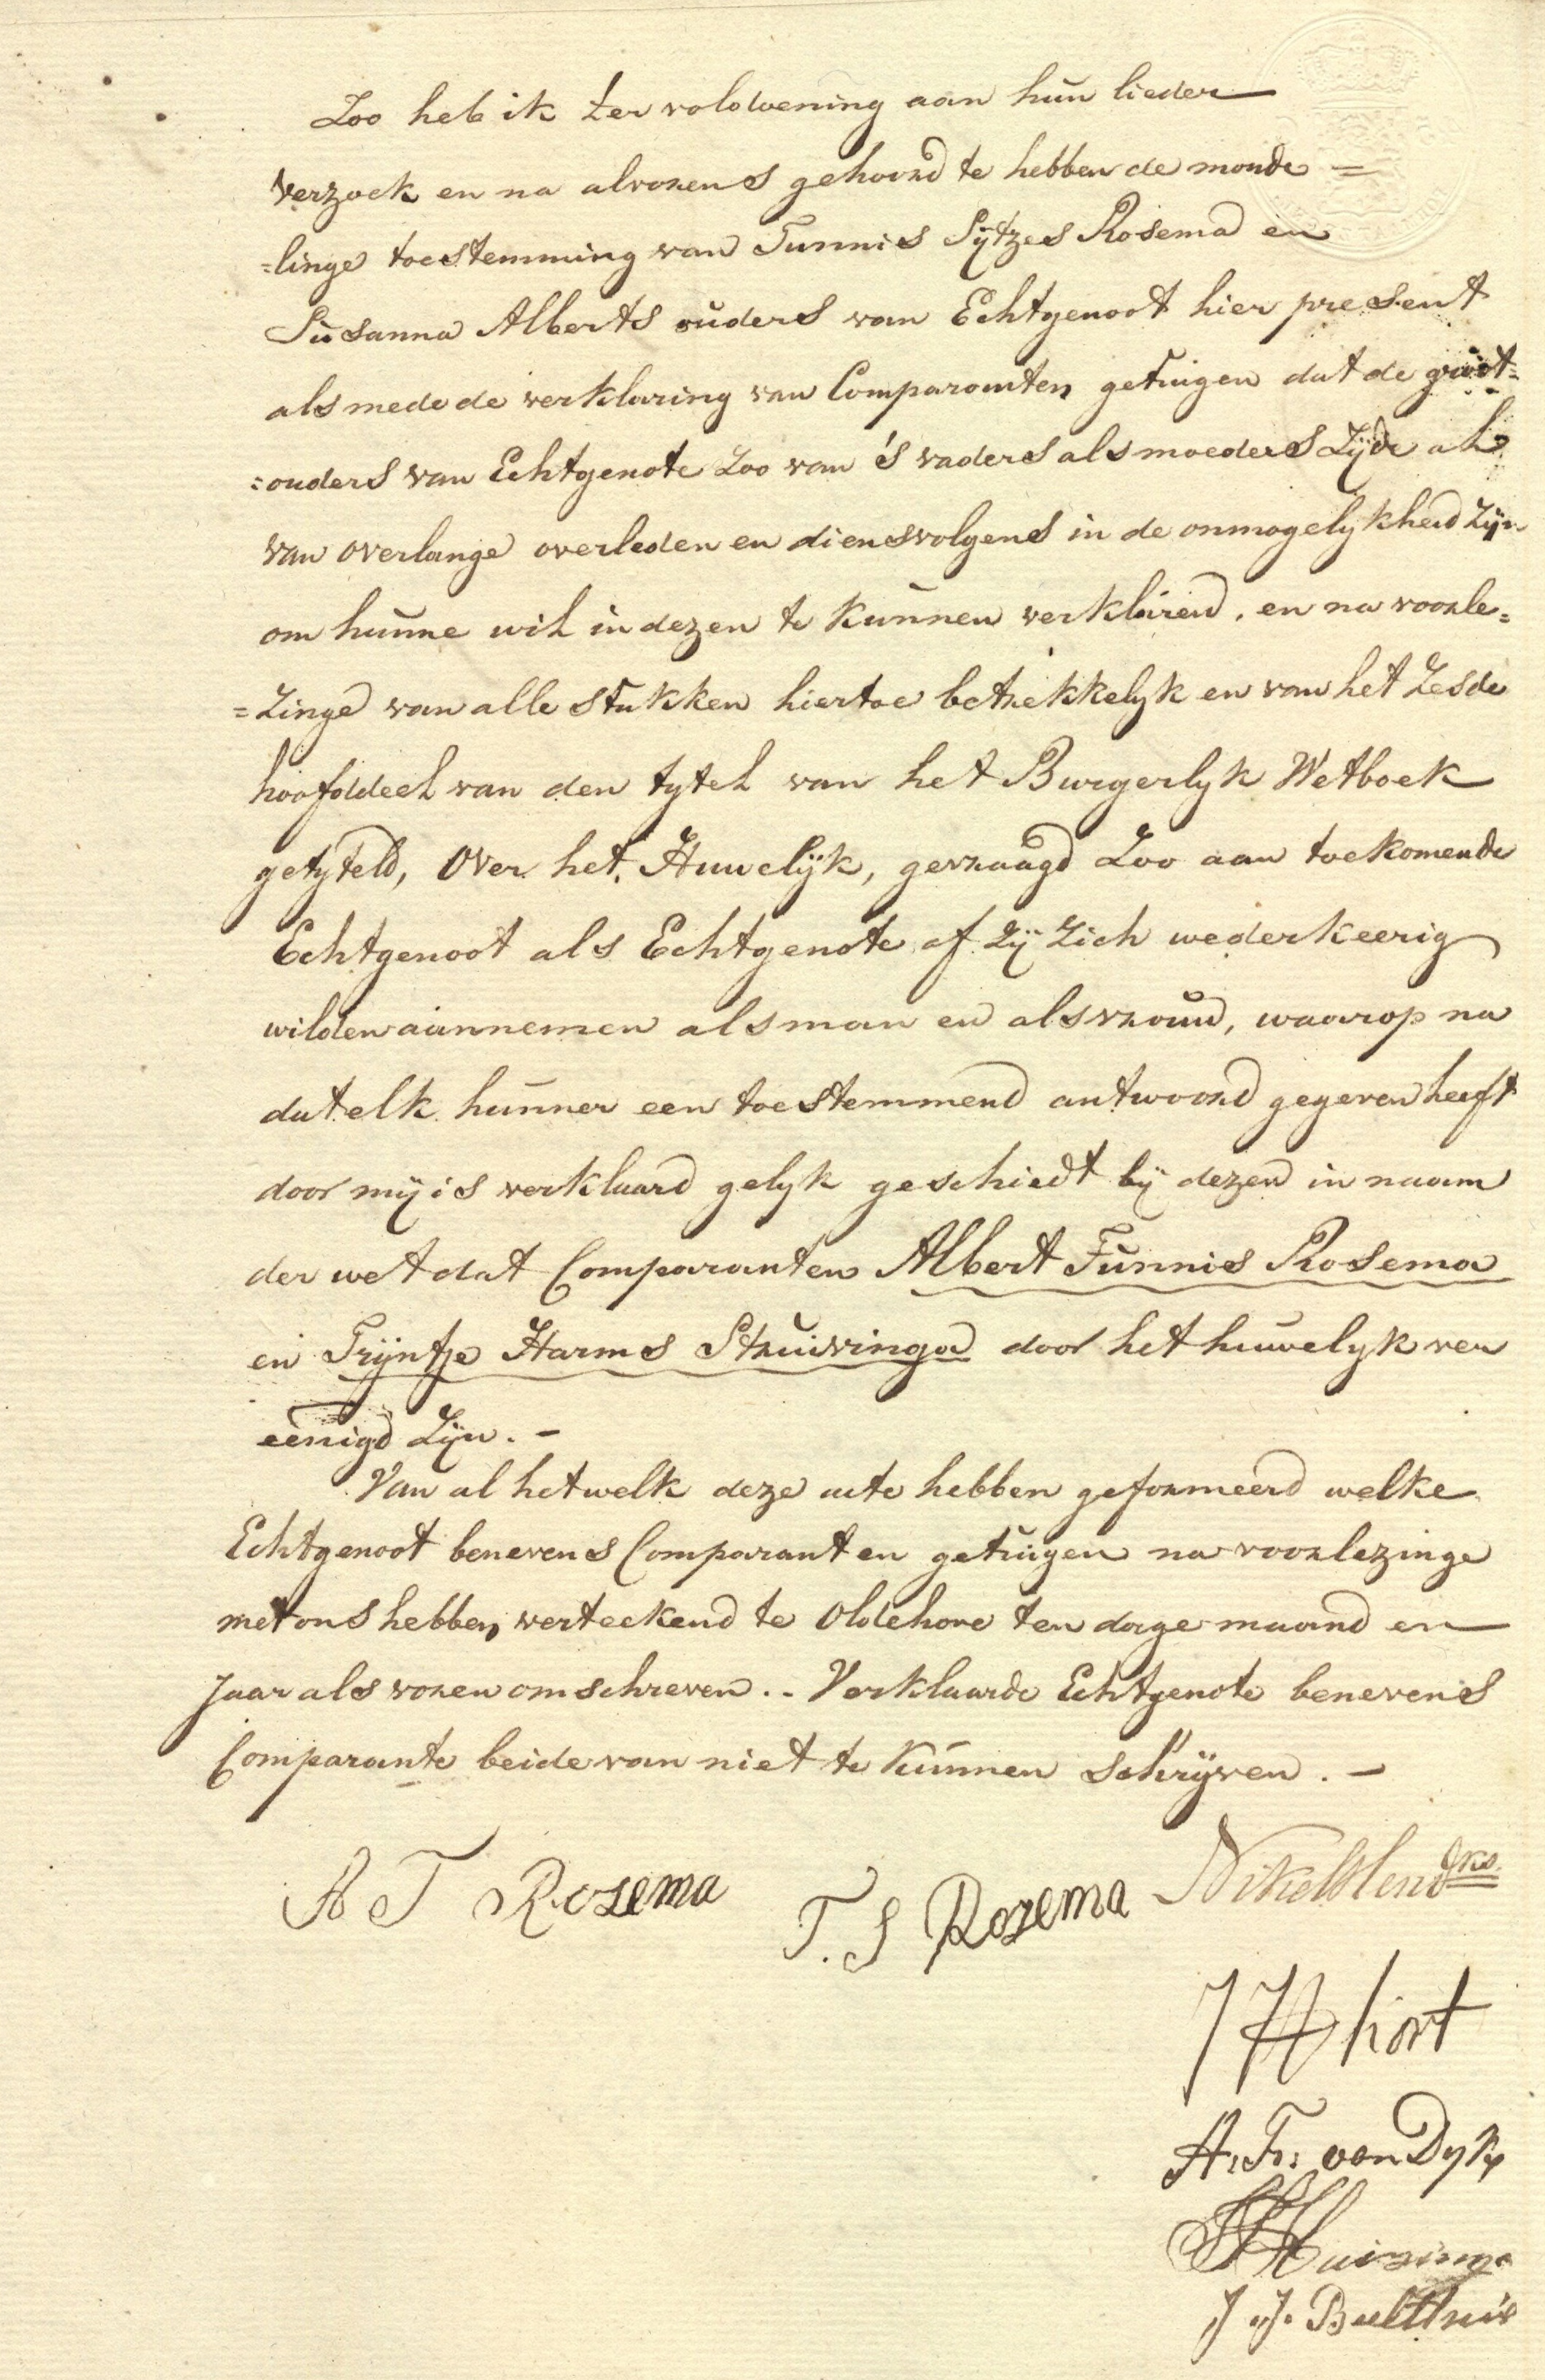 Zoo heb ik ter voldoening aan hun lieder
verzoek en na alvorens gehoord te hebben de monde =
=linge toestemming van Tunnis Sytzes Rosema en
Susanna Alberts ouders van Echtgenoot hier present
als mede de verklaring van Comparanten getuigen dat de groot=
=ouders van Echtgenote Zoo van 's vaders als moeders Zijde al
van overlange overleden en diensvolgens in de onmogelykheid Zijn
om hunne wil in dezen te kunnen verklaren. en na voorle=
=Zinge van alle stukken hiertoe betrekkelyk en van het Zesde
hoofddeel van den tytel van het Burgerlyk Wetboek
getyteld, Over het Huwelijk, gevraagd Zoo aan toekomende
Echtgenoot als Echtgenote of Zij Zich wederkeerig
wilden aannemen als man en als vrouw, waarop na
dat elk hunner een toestemmend antwoord gegeven heeft
door mij is verklaard gelyk geschiedt bij dezen in naam
der wet dat Comparanten Albert Tunnis Rosema
en Trijntje Harms Struivinga door het huwelyk ver
eenigd Zijn. -
Van al hetwelk deze acte hebben geformeerd welke
Echtgenoot benevens Comparant en getuigen na voorlezinge
met ons hebben verteekend te Oldehove ten dage maand en
Jaar als voren omschreven. - Verklaarde Echtgenote benevens
Comparante beide van niet te kunnen schrijven. -
A T Rozema
T. S Rozema
J H
A: F: van Dyk
Huizinga
J. J.